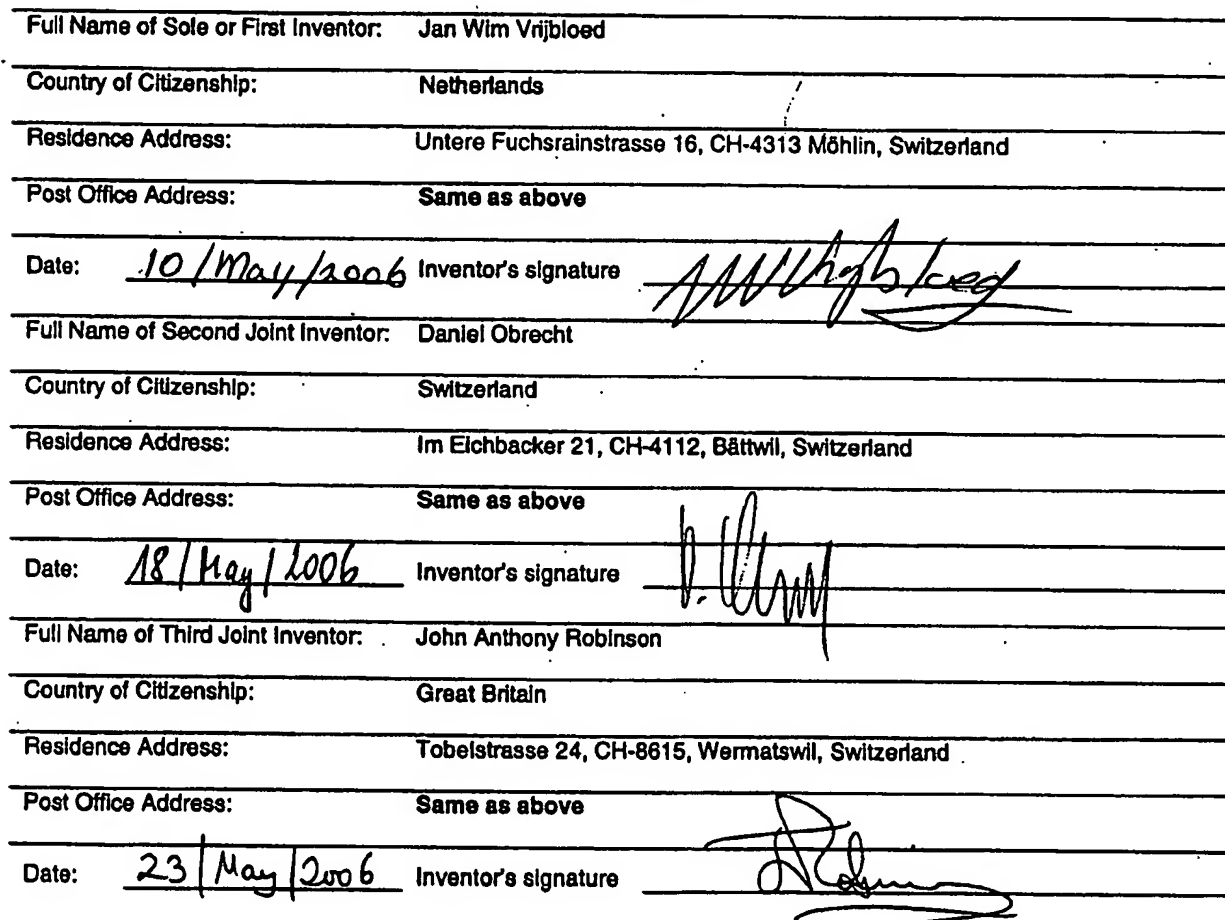 Full Name of Sole or First Inventor: Jan Wim Vrijbloed
Country of Citizenship: Netherlands
Residence Address: Untere Fuchsrainstrasse 16, CH-4313 Möhlin, Switzerland
Post Office Address: Same as above
Date: 10/May/2006 Inventor's signature
Full Name of Second Joint Inventor: Daniel Obrecht
Country of Citizenship: Switzerland
Residence Address: Im Eichbacker 21, CH-4112, Bättwil, Switzerland
Post Office Address: Same as above
Date: 18/May/2006 Inventor's signature
Full Name of Third Joint Inventor: John Anthony Robinson
Country of Citizenship: Great Britain
Residence Address: Tobelstrasse 24, CH-8615, Wermatswil, Switzerland
Post Office Address: Same as above
Date: 23/May/2006 Inventor's signature